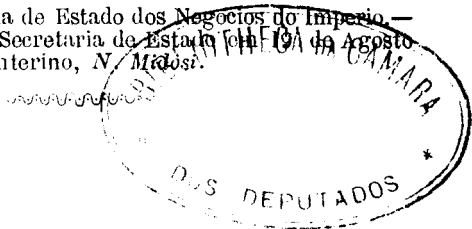 a de Estado dos Negocios do Imperio.—
Secretaria de Estado em 19 de Agosto
nterino, N. Midosi.
BIBLIOTHECA DA CAMARA
DOS DEPUTADOS